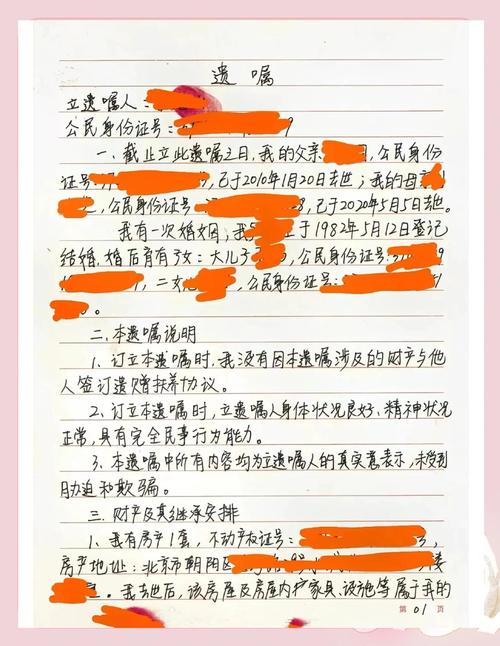 遗嘱
立遗嘱人：
公民身份证号：9
一、截止立此遗嘱之日，我的父亲，公民身份
证号：，已于2010年1月20日去世；我的母亲
，公民身份证号8，已于2020年5月5日去世。
我有一次婚姻，我于1982年5月12日登记
结婚，婚后育有子女：大儿子，公民身份证号：9
，二女，公民身份证号：
。
二、本遗嘱说明
1、订立本遗嘱时，我没有因本遗嘱涉及的财产与他
人签订遗赠扶养协议。
2、订立本遗嘱时，立遗嘱人身体状况良好、精神状况
正常，具有完全民事行为能力。
3、本遗嘱中所有内容均为立遗嘱人的真实意表示，未受到
胁迫和欺骗。
三、财产及其继承安排
1、我有房产1套，不动产权证号：
房产地址：北京市朝阳区楼
。我去世后，该房屋及房屋内家具、设施等属于我的
第01页